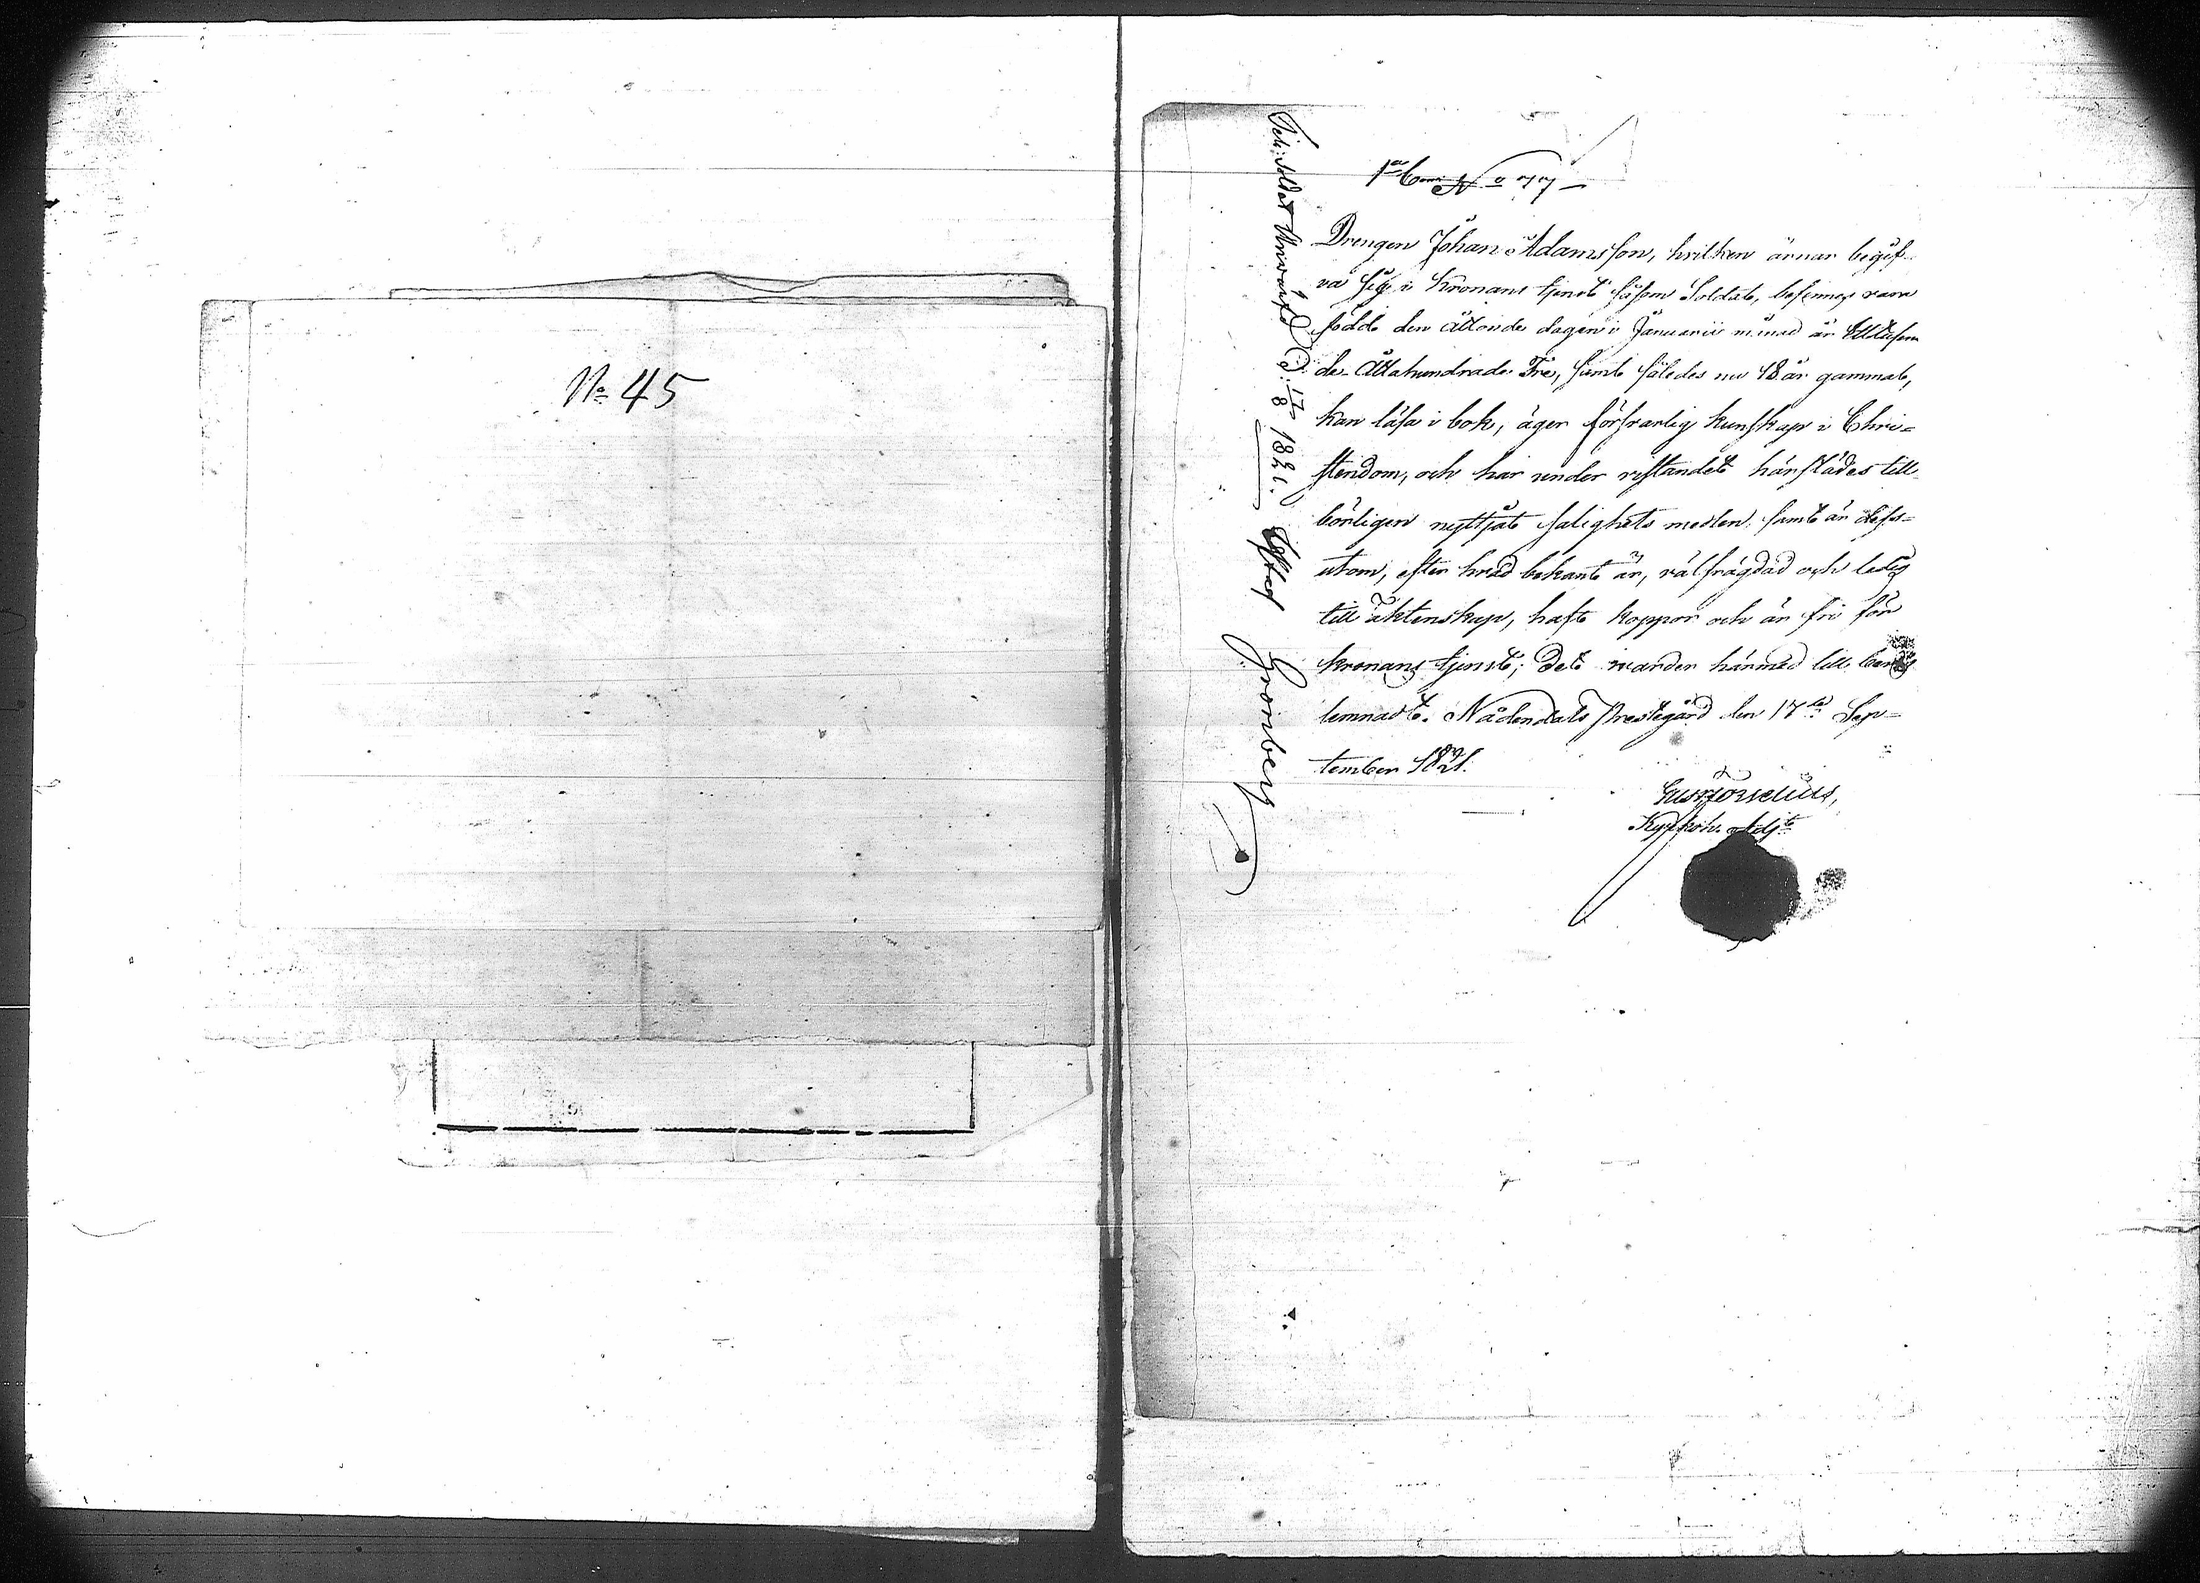 No 45
1a Com: No 77
Drengen Johan Adamsson, hvilken ärnar begif-
va sig i Kronans tjenst såsom Soldat, befinnes vara
född den åttonde dagen i Januarii månad år Ettusen-
de Åttahundrade Tre, samt således nu 18 år gammal,
kan läsa i bok, äger försvarlig kunskap i Chri-
stendom, och har under vistandet härstädes till-
börligen nyttjat salighets medlen, samt är dess-
utom, efter hvad bekant är, välfrägdad och ledig
till äktenskap, haft koppor och är fri för
kronans tjenst; Det warder härmed till bevis
lemnadt. Nådendals Prestegård den 17de Sep-
tember 1821.
Kyrkoh. Adjt
Soldat
17/8 1821.
Gronberg